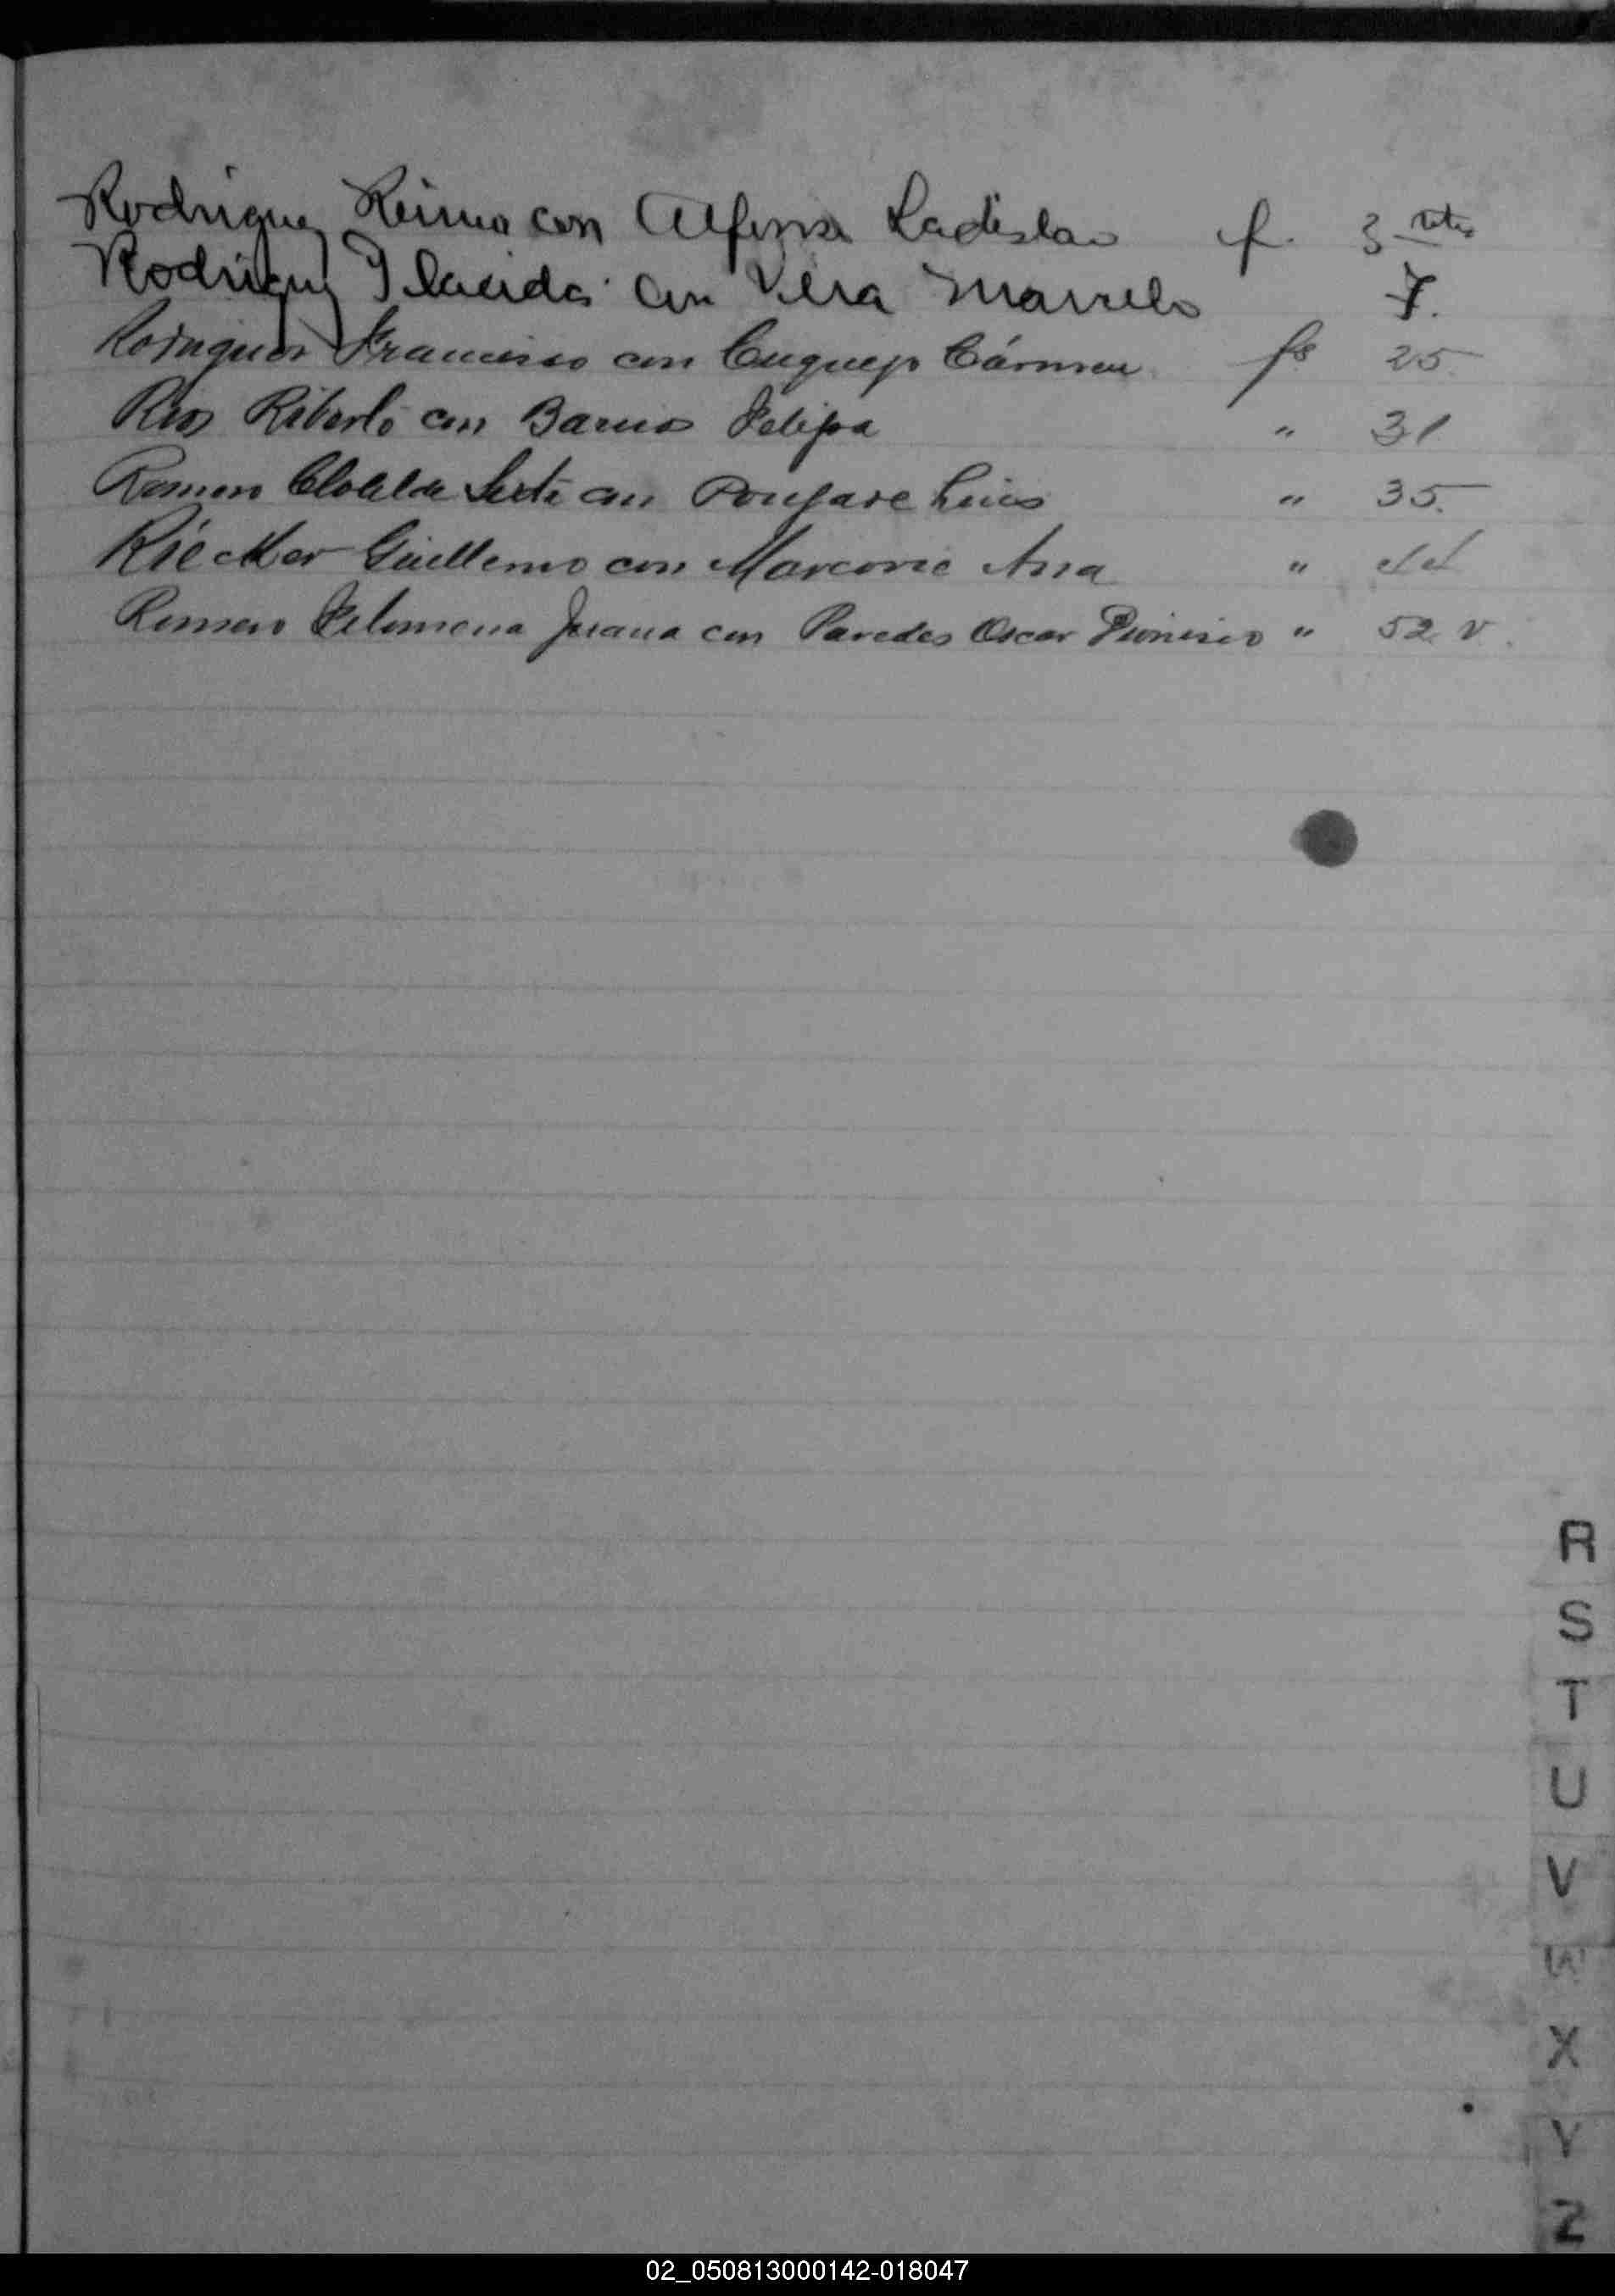 Rodriguez con Alfonso Ladislao f. 3 vta
Rodriguez Placida con Vera Marcelo 7.
Rodriguez Francisco con Cuquejo Cármen fs 25
Rios Riberto con Barrio Felipa " 31
Romero Clotilde con Luis " 35.
Riecker Guillermo con Marcovic Ana "
Romero Filomena Juana con Paredes Oscar Dionisio " 52. v.
R
S
T
U
V
W
X
Y
Z
02_050813000142-018047